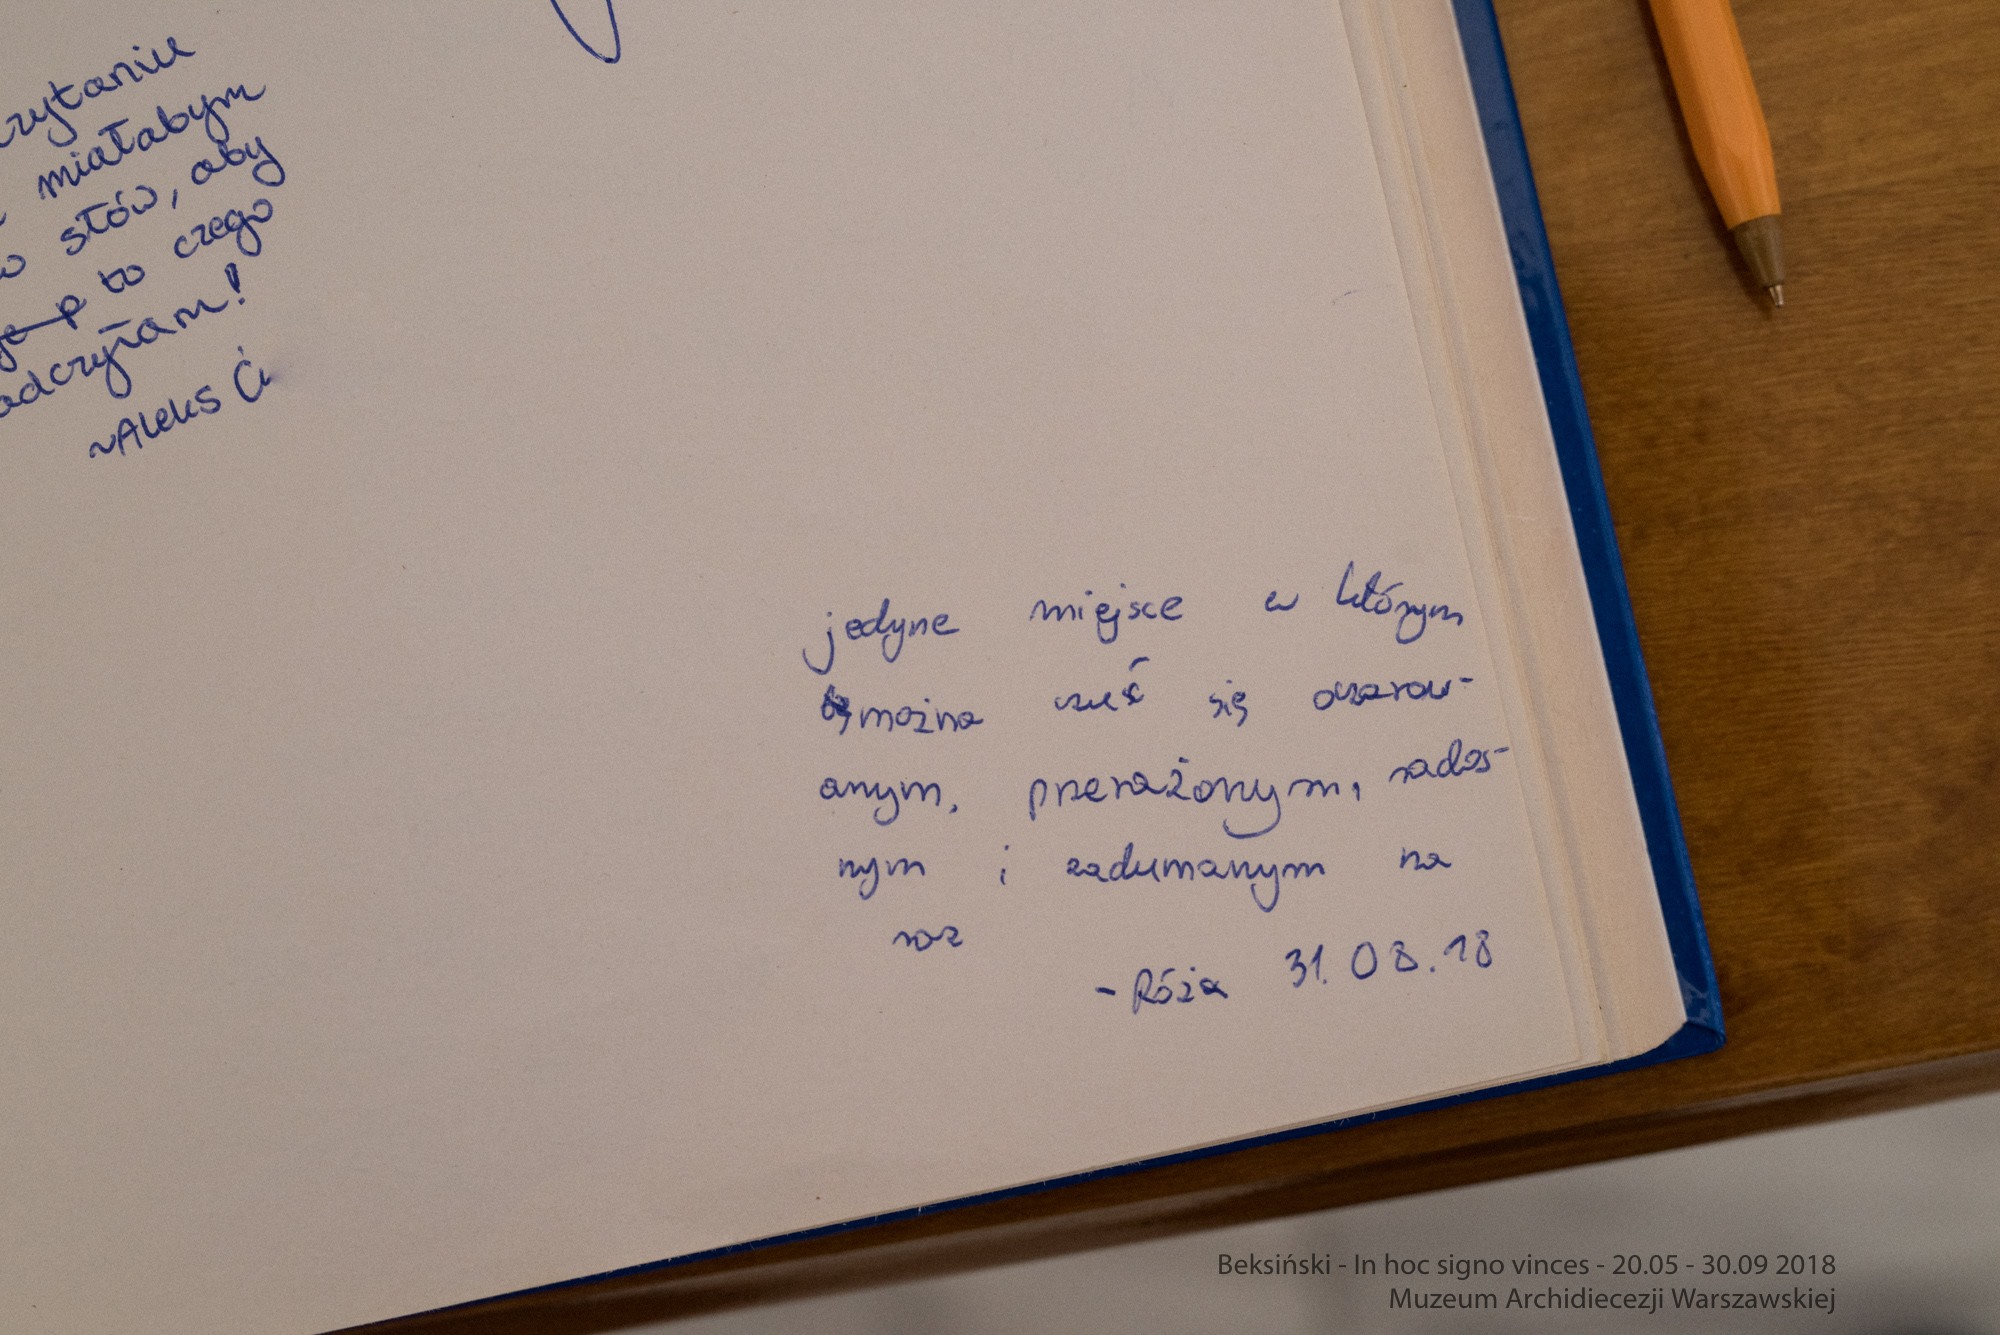 miałabym
słów, aby
to czego
~Aleks Ć
jedyne miejsce w którym
można czuć się oczarow-
anym, przerażonym, rados-
nym i zadumanym na
raz
- Róża 31.08.18
Beksiński - In hoc signo vinces - 20.05 - 30.09 2018
Muzeum Archidiecezji Warszawskiej